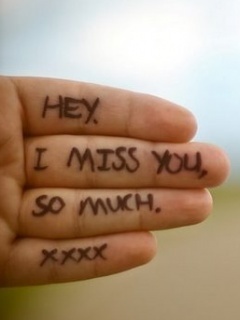 HEY.
I MISS YOU,
SO MUCH.
xxxx